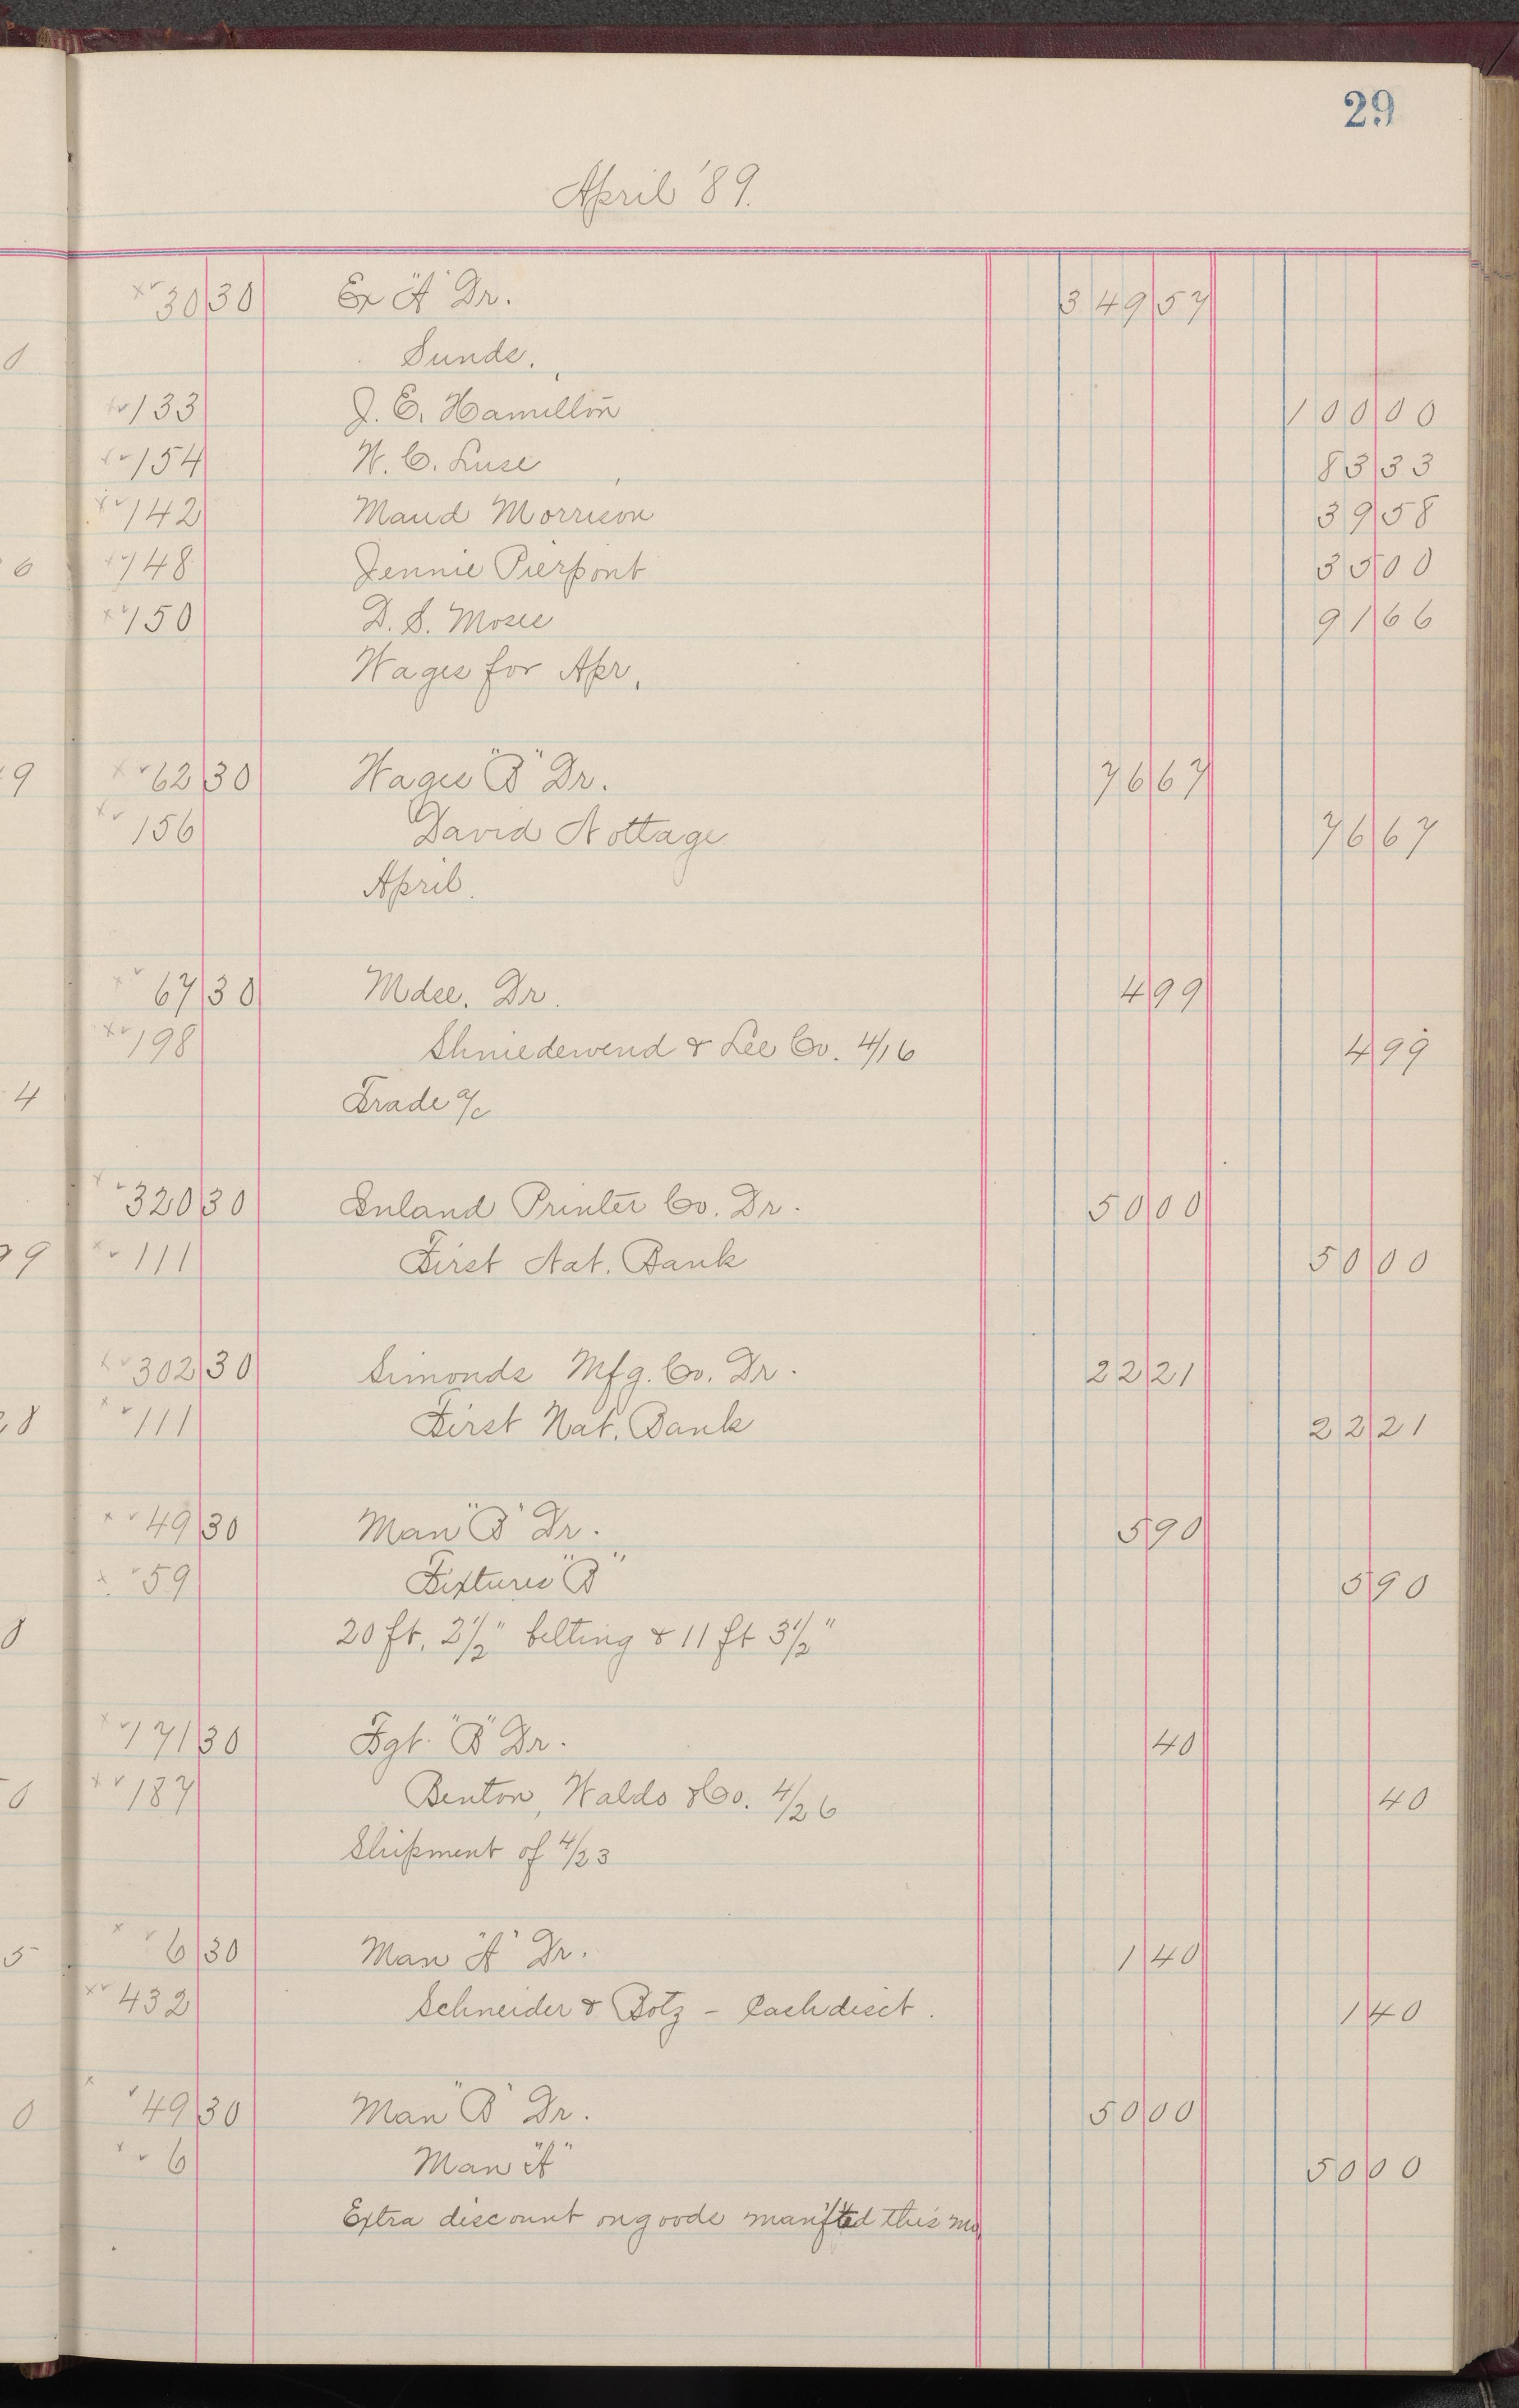 29
April '89.
30 30 Ex "A" Dr. 349 57
Sunds.
133 J. E. Hamilton 100 00
154 W. C. Luse 83 33
142 Maud Morrison 39 58
148 Jennie Pierpont 35 00
150 D. S. Moses 91 66
Wages for Apr.
62 30 Wages "B" Dr. 76 67
156 David Nottage 76 67
April.
67 30 Mdse. Dr. 4 99
198 Shniedewend & Lee Co. 4/16 4 99
4 Trade a/c
320 30 Inland Printer Co. Dr. 50 00
9 111 First Nat. Bank 50 00
302 30 Simonds Mfg. Co. Dr. 22 21
8 111 First Nat. Bank 22 21
49 30 Man "B" Dr. 5 90
59 Fixtures "B" 5 90
20 ft. 2 1/2" belting & 11 ft 3 1/2"
171 30 Fgt. "B" Dr. 40
0 187 Benton, Waldo & Co. 4/26 40
Shipment of 4/23
5 6 30 Man "A" Dr. 1 40
432 Schneider & Botz - Cash disct. 1 40
0 49 30 Man "B" Dr. 50 00
6 Man "A" 50 00
Extra discount on goods manf'ted this mo.